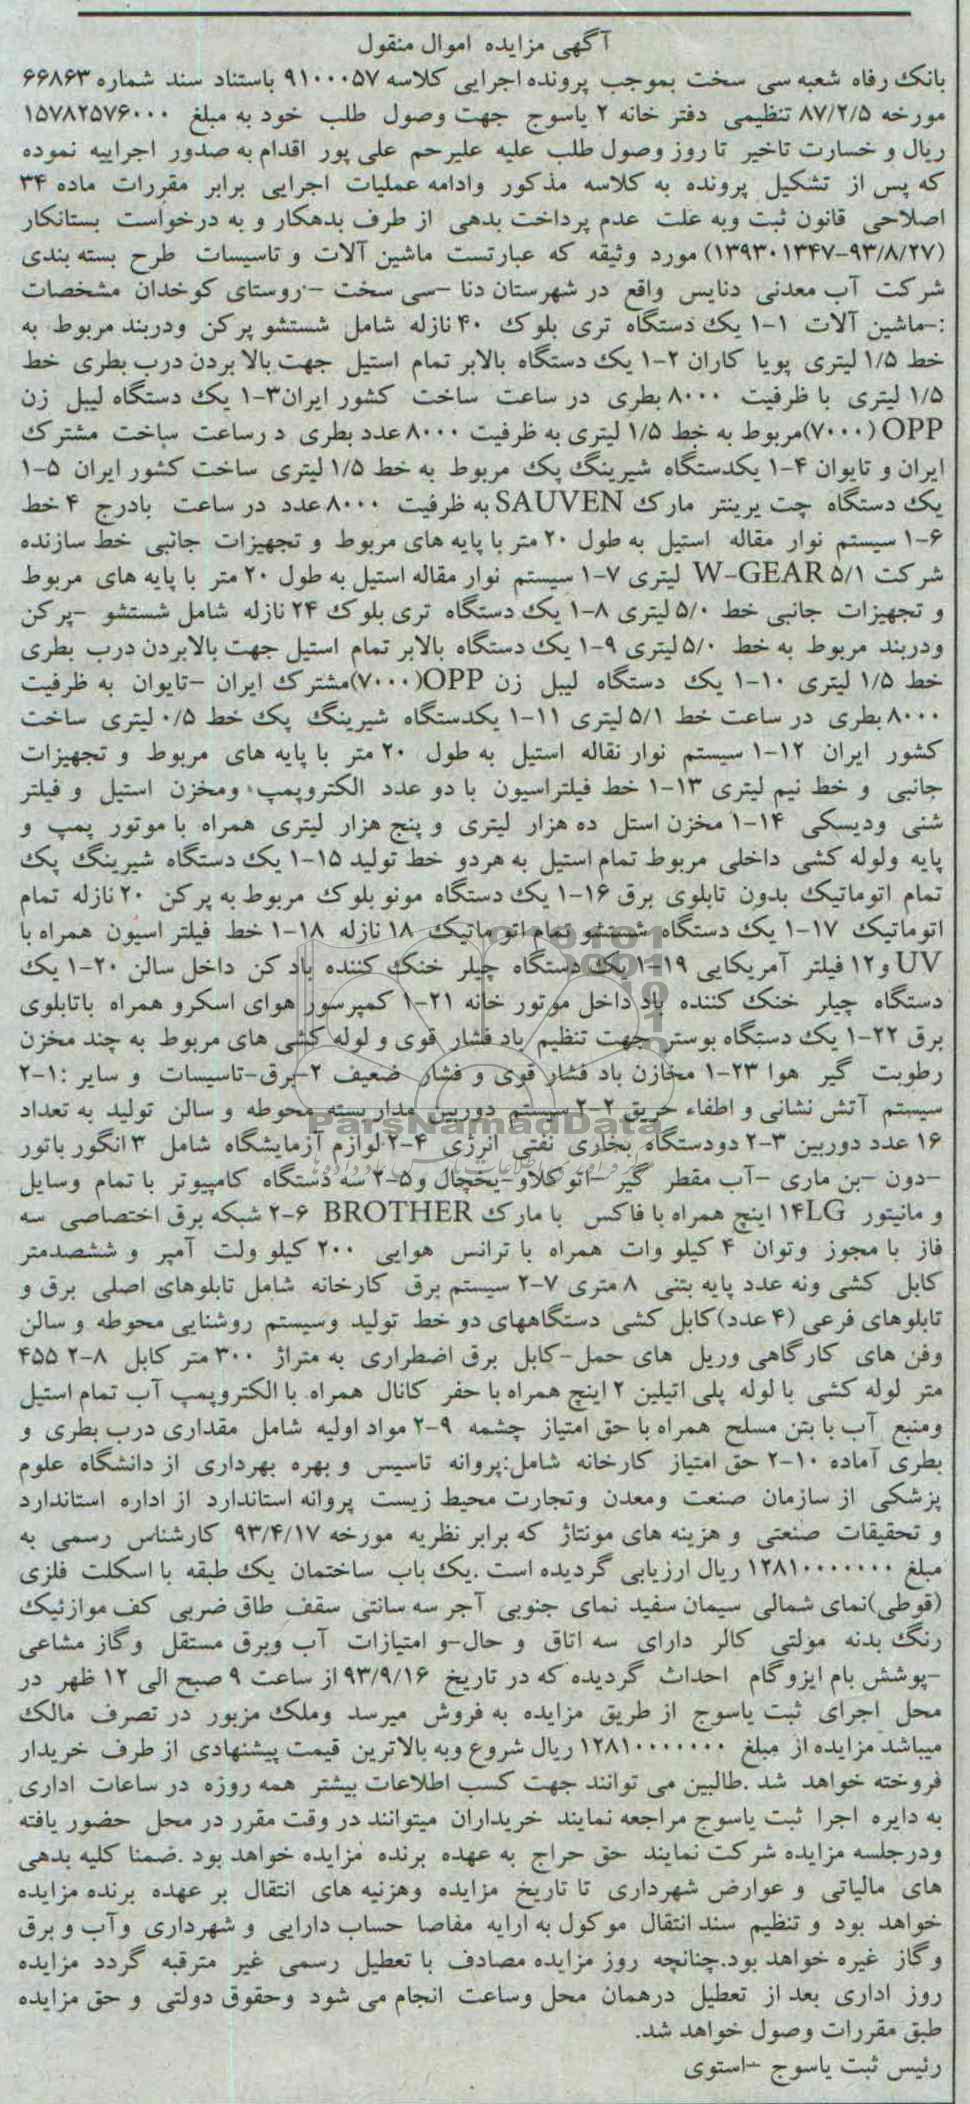 آگهی مزایده اموال منقول
بانک رفاه شعبه سی سخت بموجب پرونده اجرایی کلاسه ۹۱۰۰۰۵۷ باستناد سند شماره ۶۶۸۶۳
مورخه ۸۷/۲/۵ تنظیمی دفتر خانه ۲ یاسوج جهت وصول طلب خود به مبلغ ۱۵۷۸۲۵۷۶۰۰۰
ریال و خسارت تاخیر تا روز وصول طلب علیه علیرحم علی پور اقدام به صدور اجراییه نموده
که پس از تشکیل پرونده به کلاسه مذکور وادامه عملیات اجرایی برابر مقررات ماده ۳۴
اصلاحی قانون ثبت وبه علت عدم پرداخت بدهی از طرف بدهکار و به درخواست بستانکار
(۹۳/۸/۲۷-۱۳۹۳۰۱۳۴۷) مورد وثیقه که عبارتست ماشین آلات و تاسیسات طرح بسته بندی
شرکت آب معدنی دنایس واقع در شهرستان دنا –سی سخت –روستای کوخدان مشخصات
:-ماشین آلات ۱-۱ یک دستگاه تری بلوک ۴۰ نازله شامل شستشو پرکن ودربند مربوط به
خط ۱/۵ لیتری پویا کاران ۲-۱ یک دستگاه بالابر تمام استیل جهت بالا بردن درب بطری خط
۱/۵ لیتری با ظرفیت ۸۰۰۰ بطری در ساعت ساخت کشور ایران۳-۱ یک دستگاه لیبل زن
OPP (۷۰۰۰)مربوط به خط ۱/۵ لیتری به ظرفیت ۸۰۰۰ عدد بطری د رساعت ساخت مشترک
ایران و تایوان ۴-۱ یکدستگاه شیرینگ پک مربوط به خط ۱/۵ لیتری ساخت کشور ایران ۵-۱
یک دستگاه جت پرینتر مارک SAUVEN به ظرفیت ۸۰۰۰ عدد در ساعت بادرج ۴ خط
۶-۱ سیستم نوار مقاله استیل به طول ۲۰ متر با پایه های مربوط و تجهیزات جانبی خط سازنده
شرکت W-GEAR ۵/۱ لیتری ۷-۱ سیستم نوار مقاله استیل به طول ۲۰ متر با پایه های مربوط
و تجهیزات جانبی خط ۵/۰ لیتری ۸-۱ یک دستگاه تری بلوک ۲۴ نازله شامل شستشو –پرکن
ودربند مربوط به خط ۵/۰ لیتری ۹-۱ یک دستگاه بالابر تمام استیل جهت بالابردن درب بطری
خط ۱/۵ لیتری ۱۰-۱ یک دستگاه لیبل زن OPP(۷۰۰۰)مشترک ایران –تایوان به ظرفیت
۸۰۰۰ بطری در ساعت خط ۵/۱ لیتری ۱۱-۱ یکدستگاه شیرینگ پک خط ۰/۵ لیتری ساخت
کشور ایران ۱۲-۱ سیستم نوار نقاله استیل به طول ۲۰ متر با پایه های مربوط و تجهیزات
جانبی و خظ نیم لیتری ۱۳-۱ خط فیلتراسیون با دو عدد الکتروپمپ ومخزن استیل و فیلتر
شنی ودیسکی ۱۴-۱ مخزن استل ده هزار لیتری و پنج هزار لیتری همراه با موتور پمپ و
پایه ولوله کشی داخلی مربوط تمام استیل به هردو خط تولید ۱۵-۱ یک دستگاه شیرینگ پک
تمام اتوماتیک بدون تابلوی برق ۱۶-۱ یک دستگاه مونو بلوک مربوط به پرکن ۲۰ نازله تمام
اتوماتیک ۱۷-۱ یک دستگاه شستشو تمام اتوماتیک ۱۸ نازله ۱۸-۱ خط فیلتر اسیون همراه با
UV و ۱۲ فیلتر آمریکایی ۱۹-۱ یک دستگاه چیلر خنک کننده باد کن داخل سالن ۲۰-۱ یک
دستگاه چیلر خنک کننده باد داخل موتور خانه ۲۱-۱ کمپرسور هوای اسکرو همراه باتابلوی
برق ۲۲-۱ یک دستگاه بوستر جهت تنظیم باد فشار قوی و لوله کشی های مربوط به چند مخزن
رطوبت گیر هوا ۲۳-۱ مخازن باد فشار قوی و فشار ضعیف ۲-برق-تاسیسات و سایر :۱-۲
سیستم آتش نشانی و اطفاء حریق ۲-۲ سیستم دوربین مدار بسته محوطه و سالن تولید به تعداد
۱۶ عدد دوربین ۳-۲ دودستگاه بخاری نفتی انرژی ۴-۲ لوازم آزمایشگاه شامل ۳ انگور باتور
–دون –بن ماری –آب مقطر گیر –اتو کلاو–یخچال و۵-۲ سه دستگاه کامپیوتر با تمام وسایل
و مانیتور ۱۴LG اینچ همراه با فاکس با مارک BROTHER ۶-۲ شبکه برق اختصاصی سه
فاز با مجوز وتوان ۴ کیلو وات همراه با ترانس هوایی ۲۰۰ کیلو ولت آمپر و ششصدمتر
کابل کشی ونه عدد پایه بتنی ۸ متری ۷-۲ سیستم برق کارخانه شامل تابلوهای اصلی برق و
تابلوهای فرعی (۴ عدد)کابل کشی دستگاههای دو خط تولید وسیستم روشنایی محوطه و سالن
وفن های کارگاهی وریل های حمل-کابل برق اضطراری به متراژ ۳۰۰ متر کابل ۸-۲ ۴۵۵
متر لوله کشی با لوله پلی اتیلین ۲ اینچ همراه با حفر کانال همراه با الکتروپمپ آب تمام استیل
ومنبع آب با بتن مسلح همراه با حق امتیاز چشمه ۹-۲ مواد اولیه شامل مقداری درب بطری و
بطری آماده ۱۰-۲ حق امتیاز کارخانه شامل:پروانه تاسیس و بهره بهرداری از دانشگاه علوم
پزشکی از سازمان صنعت ومعدن وتجارت محیط زیست پروانه استاندارد از اداره استاندارد
و تحقیقات صنعتی و هزینه های مونتاژ که برابر نظریه مورخه ۹۳/۴/۱۷ کارشناس رسمی به
مبلغ ۱۲۸۱۰۰۰۰۰۰۰ ریال ارزیابی گردیده است .یک باب ساختمان یک طبقه با اسکلت فلزی
(قوطی)نمای شمالی سیمان سفید نمای جنوبی آجر سه سانتی سقف طاق ضربی کف موازئیک
رنگ بدنه مولتی کالر دارای سه اتاق و حال-و امتیازات آب وبرق مستقل وگاز مشاعی
-پوشش بام ایزوگام احداث گردیده که در تاریخ ۹۳/۹/۱۶ از ساعت ۹ صبح الی ۱۲ ظهر در
محل اجرای ثبت یاسوج از طریق مزایده به فروش میرسد وملک مزبور در تصرف مالک
میباشد مزایده از مبلغ ۱۲۸۱۰۰۰۰۰۰۰ ریال شروع وبه بالاترین قیمت پیشنهادی از طرف خریدار
فروخته خواهد شد .طالبین می توانند جهت کسب اطلاعات بیشتر همه روزه در ساعات اداری
به دایره اجرا ثبت یاسوج مراجعه نمایند خریداران میتوانند در وقت مقرر در محل حضور یافته
ودرجلسه مزایده شرکت نمایند حق حراج به عهده برنده مزایده خواهد بود .ضمنا کلیه بدهی
های مالیاتی و عوارض شهرداری تا تاریخ مزایده وهزنیه های انتقال بر عهده برنده مزایده
خواهد بود و تنظیم سند انتقال موکول به ارایه مفاصا حساب دارایی و شهرداری وآب و برق
وگاز غیره خواهد بود.چنانچه روز مزایده مصادف با تعطیل رسمی غیر مترقبه گردد مزایده
روز اداری بعد از تعطیل درهمان محل وساعت انجام می شود وحقوق دولتی و حق مزایده
طبق مقررات وصول خواهد شد.
رئیس ثبت یاسوج –استوی
ParsNamadData